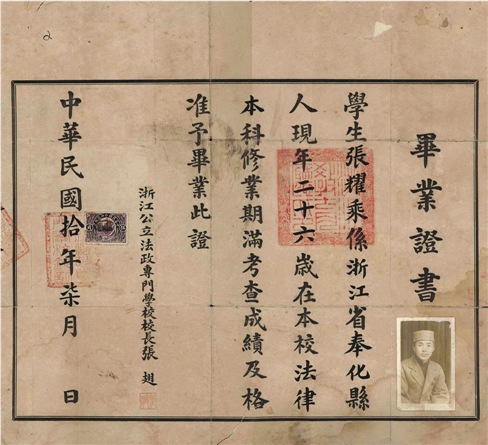 畢業證書
學生張耀乘係浙江省奉化縣
人現年二十六歲在本校法律
本科修業期滿考查成績及格
准予畢業此證
浙江公立法政專門學校校長張翅
中華民國拾年柒月　日
2